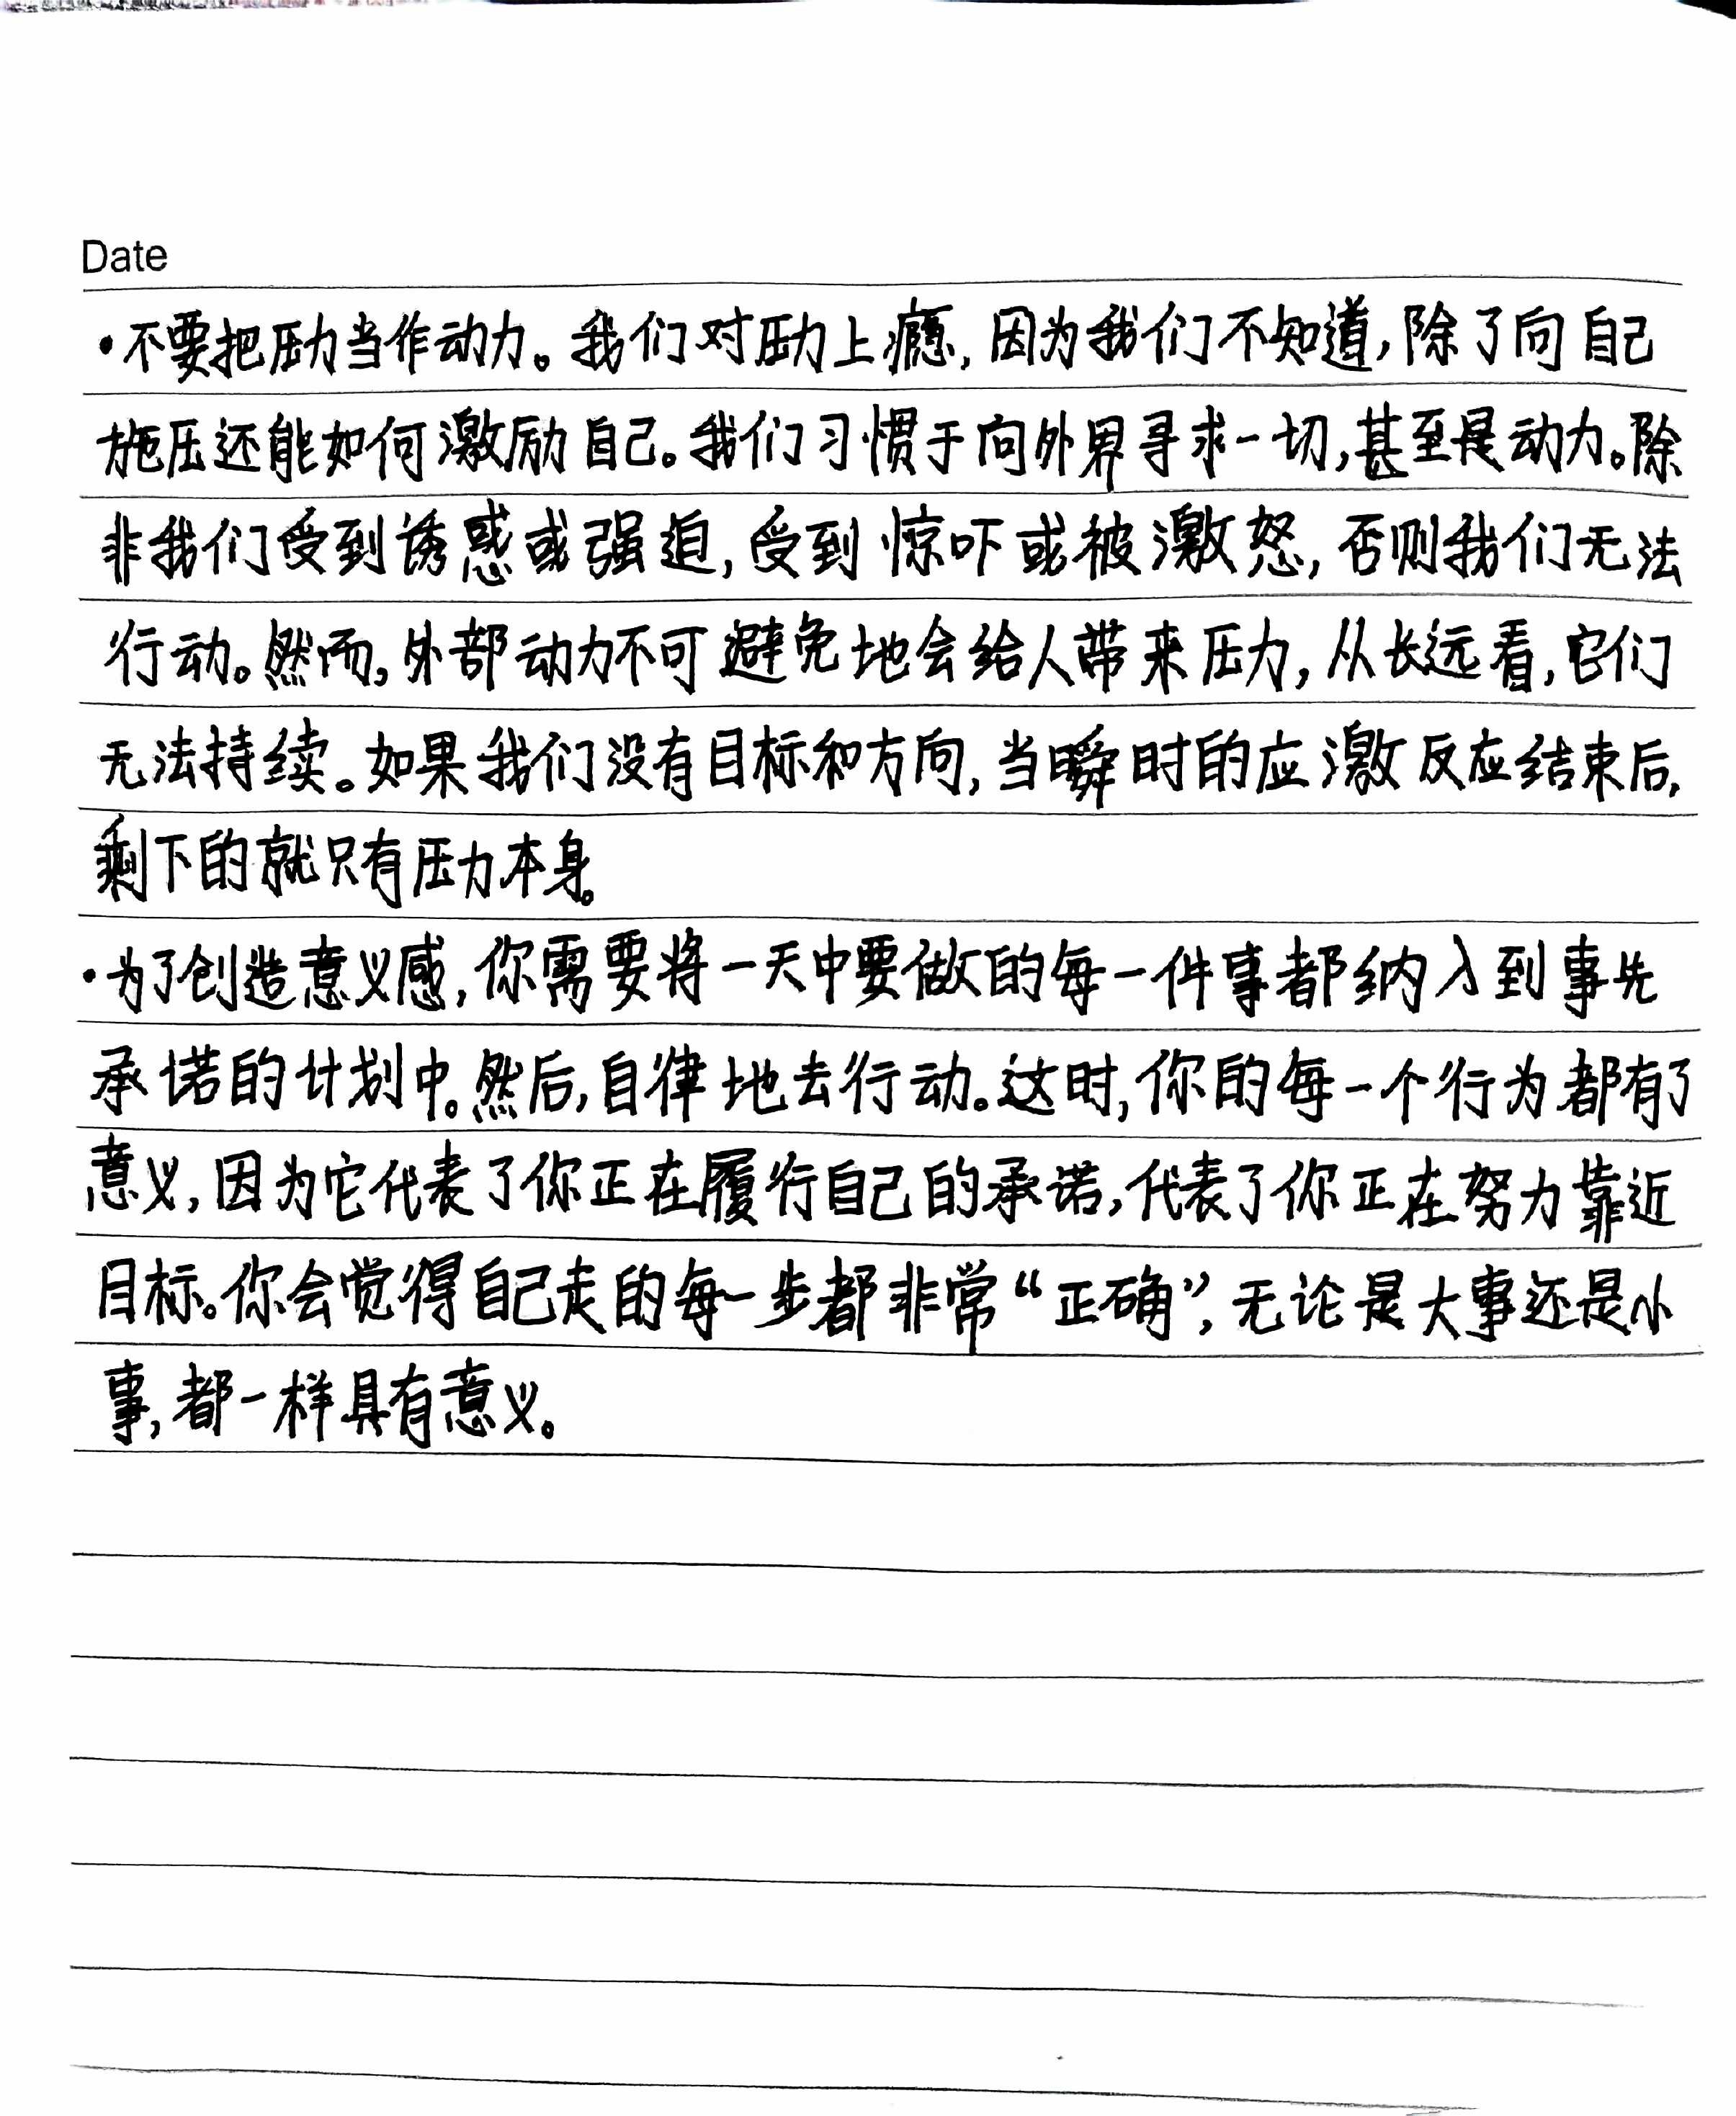 Date
·不要把压力当作动力。我们对压力上瘾,因为我们不知道,除了向自己
施压还能如何激励自己。我们习惯于向外界寻求一切,甚至是动力。除
非我们受到诱惑或强迫,受到惊吓或被激怒,否则我们无法
行动。然而,外部动力不可避免地会给人带来压力,从长远看,它们
无法持续。如果我们没有目标和方向,当瞬时的应激反应结束后,
剩下的就只有压力本身。
·为了创造意义感,你需要将一天中要做的每一件事都纳入到事先
承诺的计划中。然后,自律地去行动。这时,你的每一个行为都有了
意义,因为它代表了你正在履行自己的承诺,代表了你正在努力靠近
目标。你会觉得自己走的每一步都非常“正确”,无论是大事还是小
事,都一样具有意义。